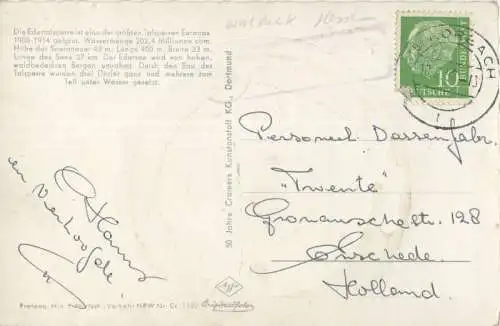 Waldeck Hessen
Die Edertalsperre ist eine der größten Talsperren Europas
1908-1914 gebaut. Wassermenge 202,4 Millionen cbm.
Höhe der Staumauer 48 m; Länge 400 m, Breite 33 m,
Länge des Sees 27 km. Der Edersee wird von hohen,
waldbedeckten Bergen umrahmt. Durch den Bau der
Talsperre wurden drei Dörfer ganz und mehrere zum
Teil unter Wasser gesetzt.
10
DEUTSCHE BUNDESPOST
50 Jahre Cramers Kunstanstalt KG., Dortmund
Personeel Dassenfabr.
"Twente"
Gronauschestr. 128
Enschede
Holland.
Hans
en Verhoogde
Agfa
Originalfoto